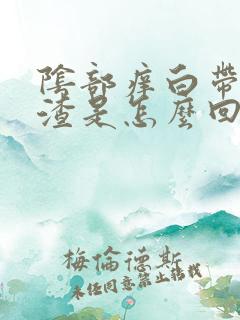 陰部痒白帶
渣是怎麽回
梅倫德斯
未经同意禁止转载